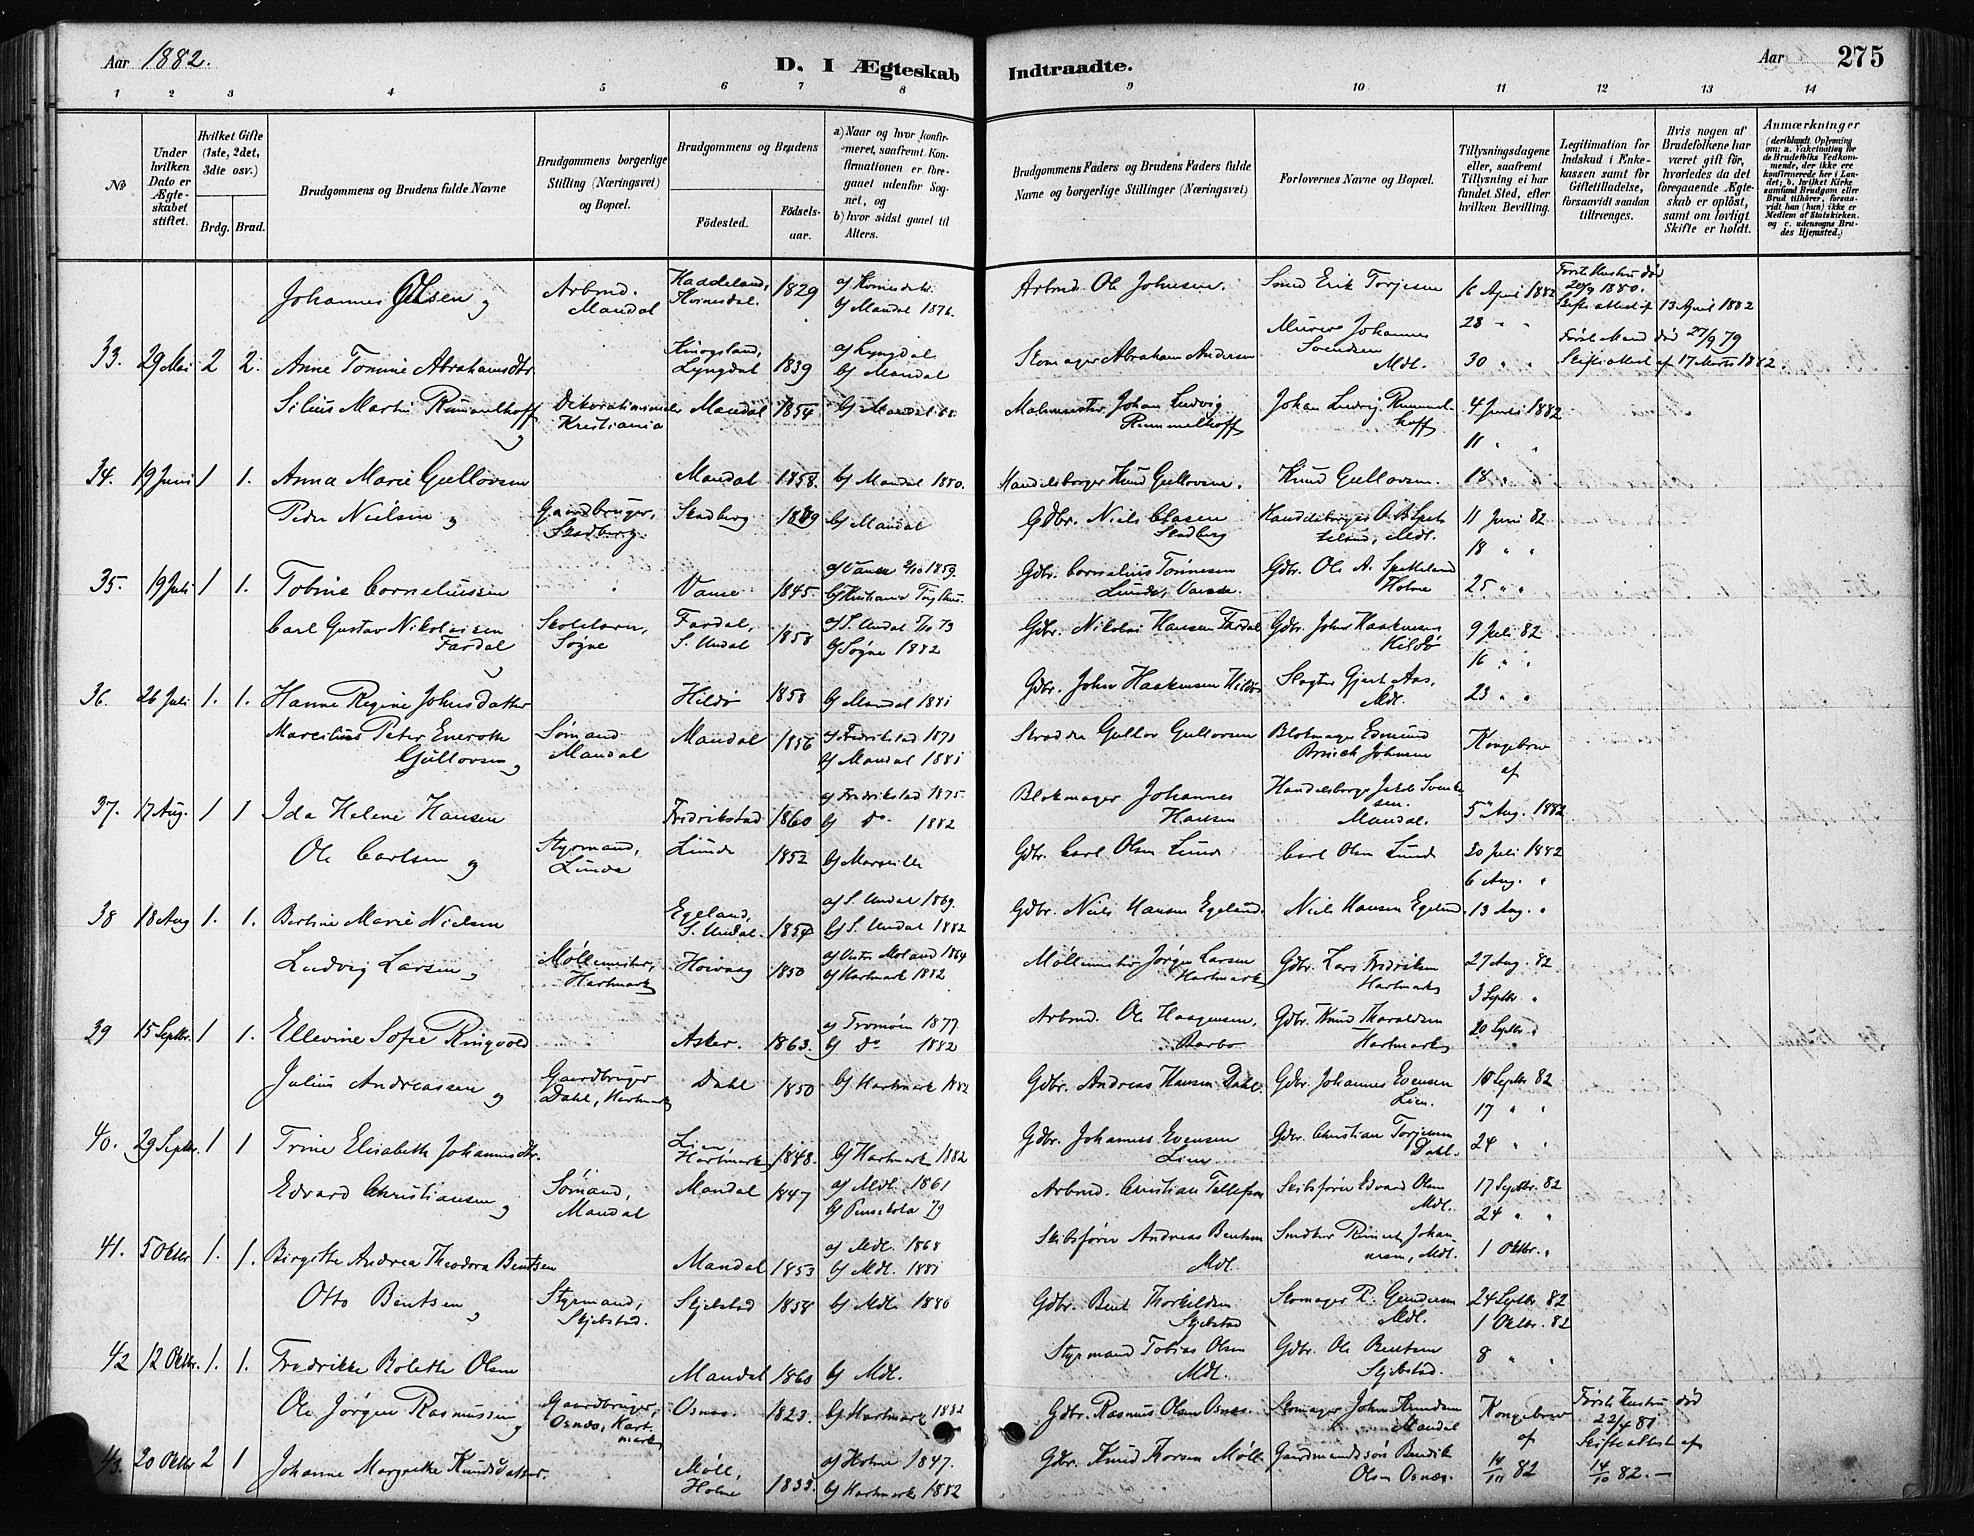 Aar 1882.
D. I Ægteskab Indtraadte.
Aar 275
1 2 3 4 5 6 7 8 9 10 11 12 13 14
No
Under hvilken Dato er Ægteskabet stiftet.
Hvilket Gifte (1ste, 2det, 3die osv.)
Brdg. Brud.
Brudgommens og Brudens fulde Navne
Brudgommens borgerlige Stilling (Næringsvei) og Bopæl.
Brudgommens og Brudens
Fødested. Fødselsaar.
a) Naar og hvor konfirmeret, saafremt Konfirmationen er foregaaet udenfor Sognet, og
b) hvor sidst gaaet til Alters.
Brudgommens Faders og Brudens Faders fulde Navne og borgerlige Stillinger (Næringsvei)
Forlovernes Navne og Bopæl.
Tillysningsdagene eller, saafremt Tillysning ei har fundet Sted, efter hvilken Bevilling.
Legitimation for Indskud i Enkekassen samt for Giftetilladelse, forsaavidt saadan tiltrænges.
Hvis nogen af Brudefolkene har været gift før, hvorledes da det foregaaende Ægteskab er opløst, samt om lovligt Skifte er holdt.
Anmærkninger
Johannes Olsen og Arbmd. Mandal Haddeland, Kvinesdal. 1829 a) Kvinesdal b) Mandal 1876. Arbmd. Ole Johnsen. Smed Erik Torjesen 16 April 1882 Første Hustru død 20/9 1880. Skifteattest af 13 April 1882
33. 29 Mai 2 2. Anne Tomine Abrahamsdtr. Lyngdal 1839 a) Lyngdal b) Mandal Skomager Abraham Andersen Murer Johannes Svendsen Mdl. 23 " " 30 " " Første Mand død 27/9 79 Skifteattest af 17 Marts 1882.
Silius Martin Rummelhoff og Kristiania Mandal 1854 b) Mandal Malermester Johan Ludvig Rummelhoff Johan Ludvig Rummelhoff 4 Juni 1882 11 " "
34. 19 Juni 1 1. Anna Marie Gullovsen Mandal 1858. b) Mandal 1880. Handelsborger Knud Gullovsen. Knud Gullovsen. 18 " "
Peder Nielsen og Gaardbruger, Skadberg Skadberg b) Mandal Gdbr. Niels Clasen Skadberg Mdl. 11 Juni 82 18 " "
35. 19 Juli 1 1. Corneliussen Vanse 1845. a) Vanse 1859. Gdbr. Cornelius Tønnesen Lunde, Vanse. Gdbr. Ole A. Spetteland Holme 25 " "
Carl Gustav Nikolaisen Fardal og Skolelærer, Søgne Fardal, S. Undal 1858 a) S. Undal 73 b) Søgne 1882 Gdbr. Nikolai Hansen Fardal Gdbr. John Haakensen Hildø 9 Juli 82 16 " "
36. 26 Juli 1. 1. Hanne Regine Johnsdatter Hildø 1853 b) Mandal 1881 Gdbr. John Haakensen Hildø Slagter Gjert Aas, Mdl. 23 " "
Marcilius Peter Eneroth Gullovsen og Sømand Mandal Mandal 1856 a) Fredrikstad 1873 b) Mandal 1881 Gullov Gullovsen Blokmager Edmund Johnsen Kongebrev af
37. 17 Aug. 1 1 Ida Helene Hansen Fredrikstad 1860 a) Fredrikstad 1875. b) do 1882 Blokmager Johannes Hansen Mandal. 5 Aug. 1882
Ole Carlsen og Styrmand, Lunde Lunde 1852 b) Marseille Gdbr. Carl Olsen Lunde Carl Olsen Lunde 20 Juli 1882 6 Aug. "
38 18 Aug 1. 1. Bertine Marie Nielsen Egeland, S. Undal. 1854 a) S. Undal 1869. b) S. Undal 1882 Gdbr. Niels Hansen Egeland. Niels Hansen Egeland. 13 Aug. "
Ludvig Larsen og Møllemester, Hartmark Høivaag 1850 a) Vester Moland 1864 b) Hartmark 1882. Møllemester Jørgen Larsen Hartmark Gdbr. Lars Fredriksen Hartmark 27 Aug. 82 3 Septbr. "
39 15 Septbr. 1 1. Ellevine Sofie Ringvold Asker. 1863. a) Tromøen 1877 b) do 1882 Arbmd. Ole Haagensen, Barbo Gdbr. Knud Haraldsen Hartmark 20 Septbr. "
Julius Andreassen og Gaardbruger Dahl, Hartmark Dahl 1850 b) Hartmark 1882 Gdbr. Andreas Hansen Dahl Gdbr. Johannes Evensen Lien. Septbr 82 17 " "
40. 29 Septbr. 1 1 Trine Elisabeth Johannesdtr. Lien Hartmark 1848. b) Hartmark 1882 Gdbr. Johannes Evensen Lien Gdbr. Christian Torjesen Dahl. 24 " "
Edvard Christiansen og Sømand, Mandal Mandal 1847 a) Mdl. 1861 b) Pensekola 79 Arbmd. Christian Tellefsen Skibsfører Edvard Olsen Mdl. 17 Septbr. 82 24 " "
41. 5 Oktbr 1. 1. Birgitte Andrea Theodora Bentsen Mandal 1853 a) Mdl. 1868 b) Mdl. 1881 Skibsfører Andreas Bentsen Mdl. Johannesen, Mdl. 1 Oktbr. "
Otto Bentsen og Styrmand, Skjebstad. Skjebstad 1858 b) Mdl. 1880 Gdbr. Bent Thorkildsen Skjebstad Skomager R. Gundersen Mdl. 24 Septbr 82 1 Oktbr. 82
42 12 Oktbr. 1. 1. Fredrikke Bolette Olsen Mandal 1860 b) Mdl. Styrmand Tobias Olsen Mdl. Gdbr. Ole Bentsen Skjebstad. 8 " "
Ole Jørgen Rasmussen og Gaardbruger, Osnæs, Hartmark Osnæs. 1823. b) Hartmark 1882 Gdbr. Rasmus Olsen Osnæs. Skomager John Knudsen Mandal Kongebrev af Første Hustru død 22/4 81
43. 20 Oktbr 2 1 Johanne Margrethe Knudsdatter. Møll, Holme 1833. a) Holme 1847. b) Hartmark 1882 Gdbr. Knud Thorsen Møll Gaardmandssøn Bendik Olsen Osnæs. 14/10 82 Skifteattest af 14/10 82.